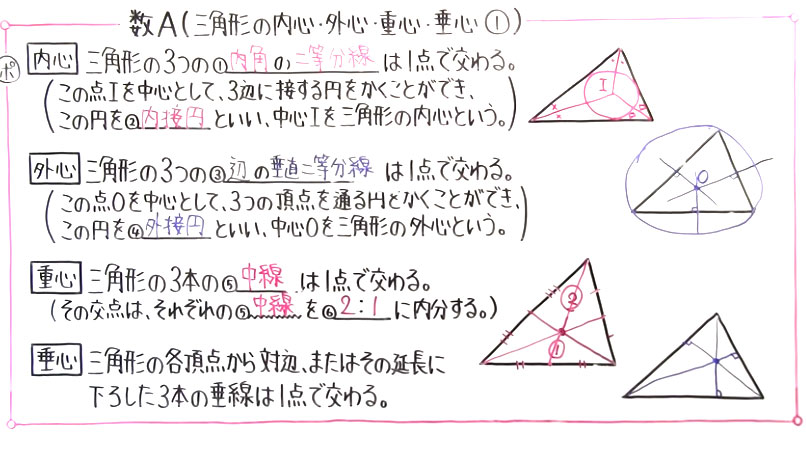 数A(三角形の内心・外心・重心・垂心①)
ポ
内心 三角形の3つの①内角の二等分線は1点で交わる。
(この点Iを中心として、3辺に接する円をかくことができ、
この円を②内接円といい、中心Iを三角形の内心という。)
I
外心 三角形の3つの③辺の垂直二等分線は1点で交わる。
(この点Oを中心として、3つの頂点を通る円をかくことができ、
この円を④外接円といい、中心Oを三角形の外心という。)
O
重心 三角形の3本の⑤中線は1点で交わる。
(その交点は、それぞれの⑤中線を⑥2:1に内分する。)
②
①
垂心 三角形の各頂点から対辺、またはその延長に
下ろした3本の垂線は1点で交わる。